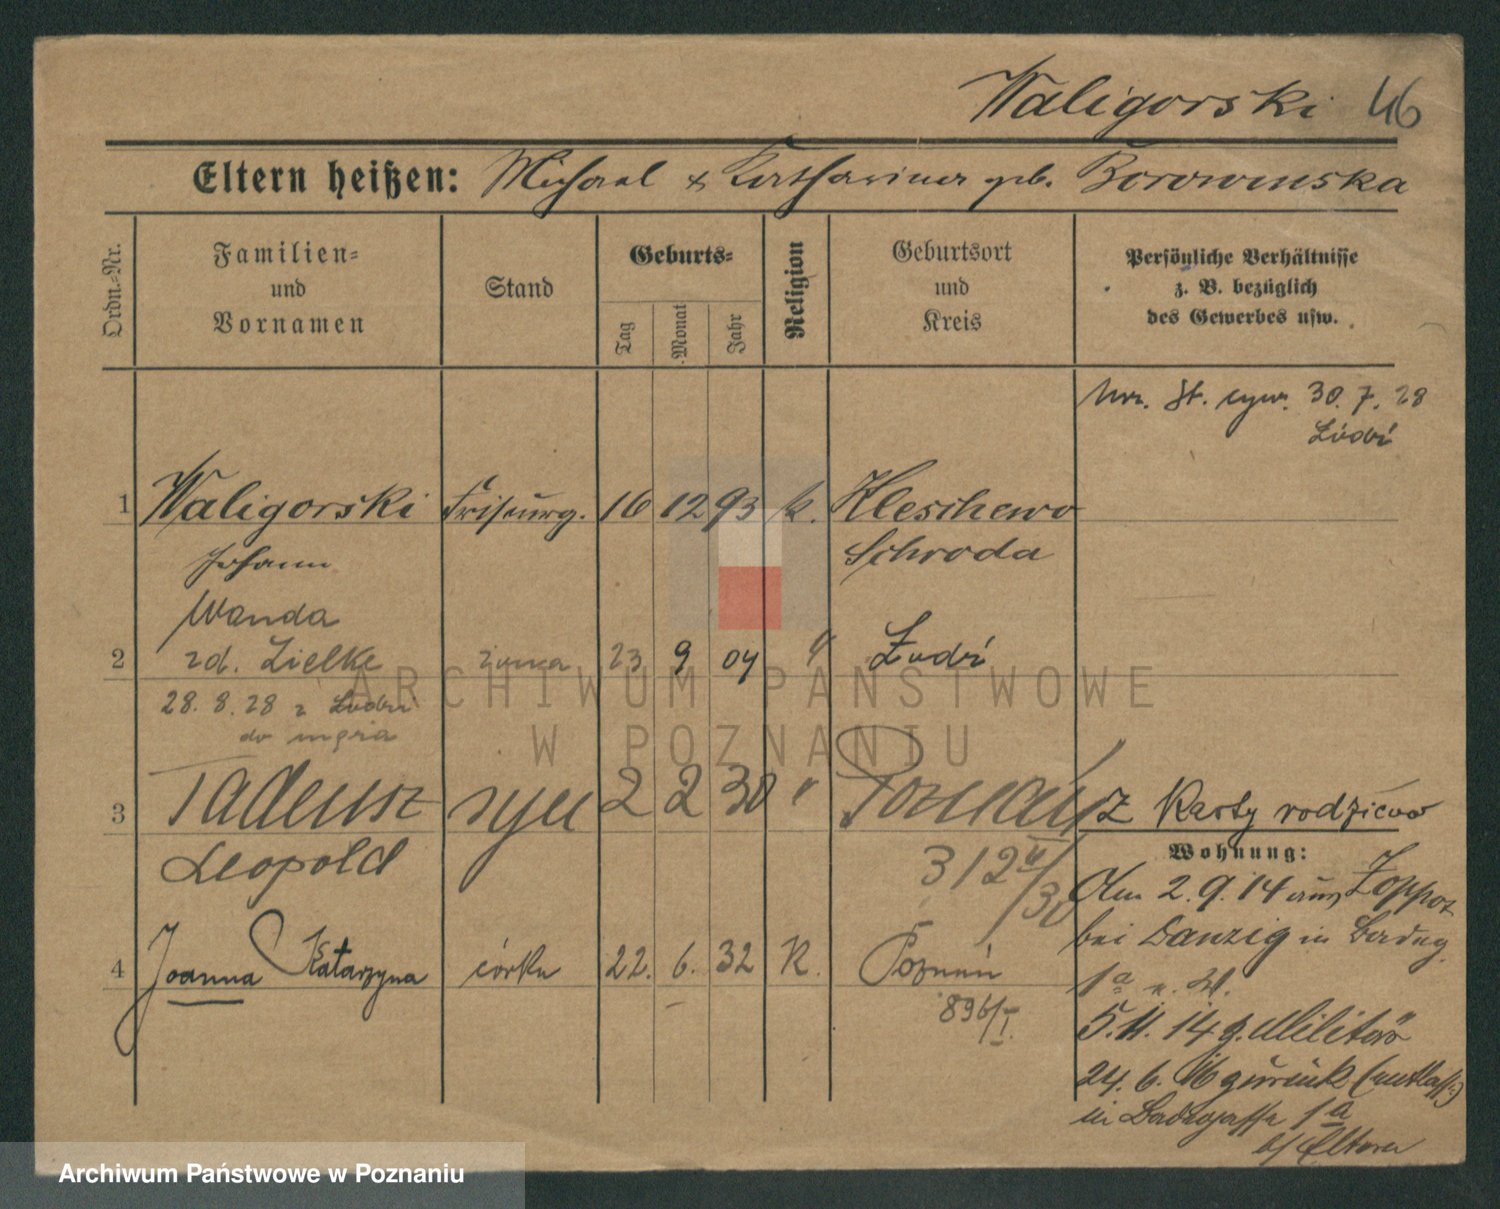 Waligorski 46
Eltern heißen: Michael & Katharina geb. Borowinska
Ordn.-Nr.
Familien-
und
Vornamen
Stand
Geburts-
Tag
Monat
Jahr
Religion
Geburtsort
und
Kreis
Persönliche Verhältnisse
z. B. bezüglich
des Gewerbes usw.
30. 7. 28
1 Waligorski 16 12 93 k. Kleschewo
Johann Schroda
Wanda
2 zd. Zielke żona 23 9 04 "
28. 8. 28 z
do męża
3 Tadeusz syn 2 2 30 " Poznań z Karty rodziców
Leopold 312 II/30
Wohnung:
Am 2. 9. 14 aus Zoppot
bei Danzig in
1a
4 Joanna Katarzyna córka 22. 6. 32 K. Poznań
896/I.
5. 11. 14 z. Militär
24. 6. 16 zurück
in 1a
b/ Eltern
ARCHIWUM PAŃSTWOWE
W POZNANIU
Archiwum Państwowe w Poznaniu